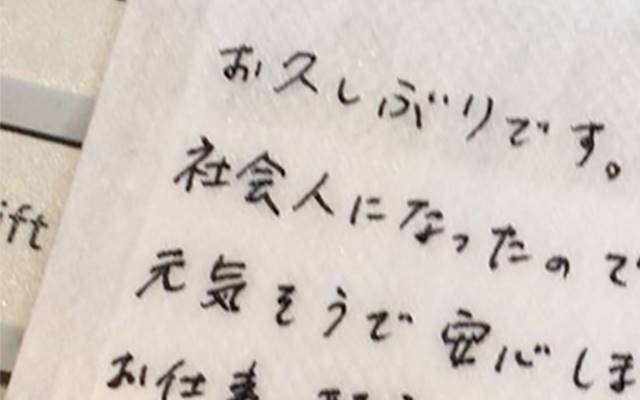 お久しぶりです。
社会人になったので
元気そうで安心しま
お仕事
ift